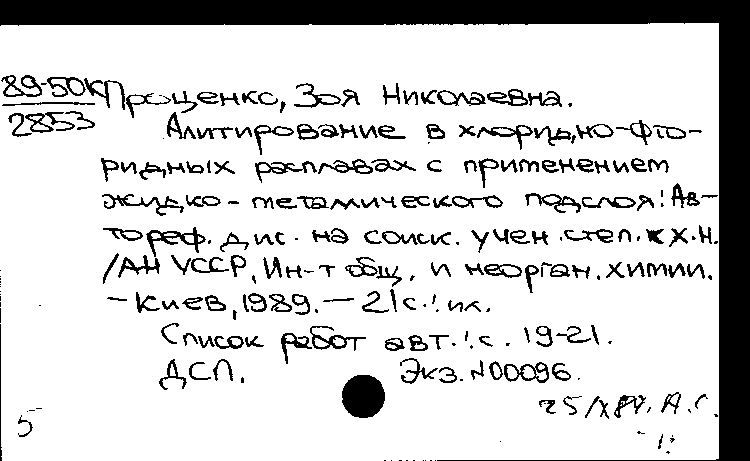 89-50К Проценко, Зоя Николаевна.
2853
Алитирование в хлоридно-фто-
ридных расплавах с применением
жидко-металлического подслоя: Ав-
тореф. дис. на соиск. учен. степ. к. х. н.
/АН УССР, Ин-т общ. и неорган. химии.
- Киев, 1989. - 21 с.: ил.
Список работ авт.: с. 19-21.
ДСП. Экз. N 00096.
25/X 89. А.С.
5